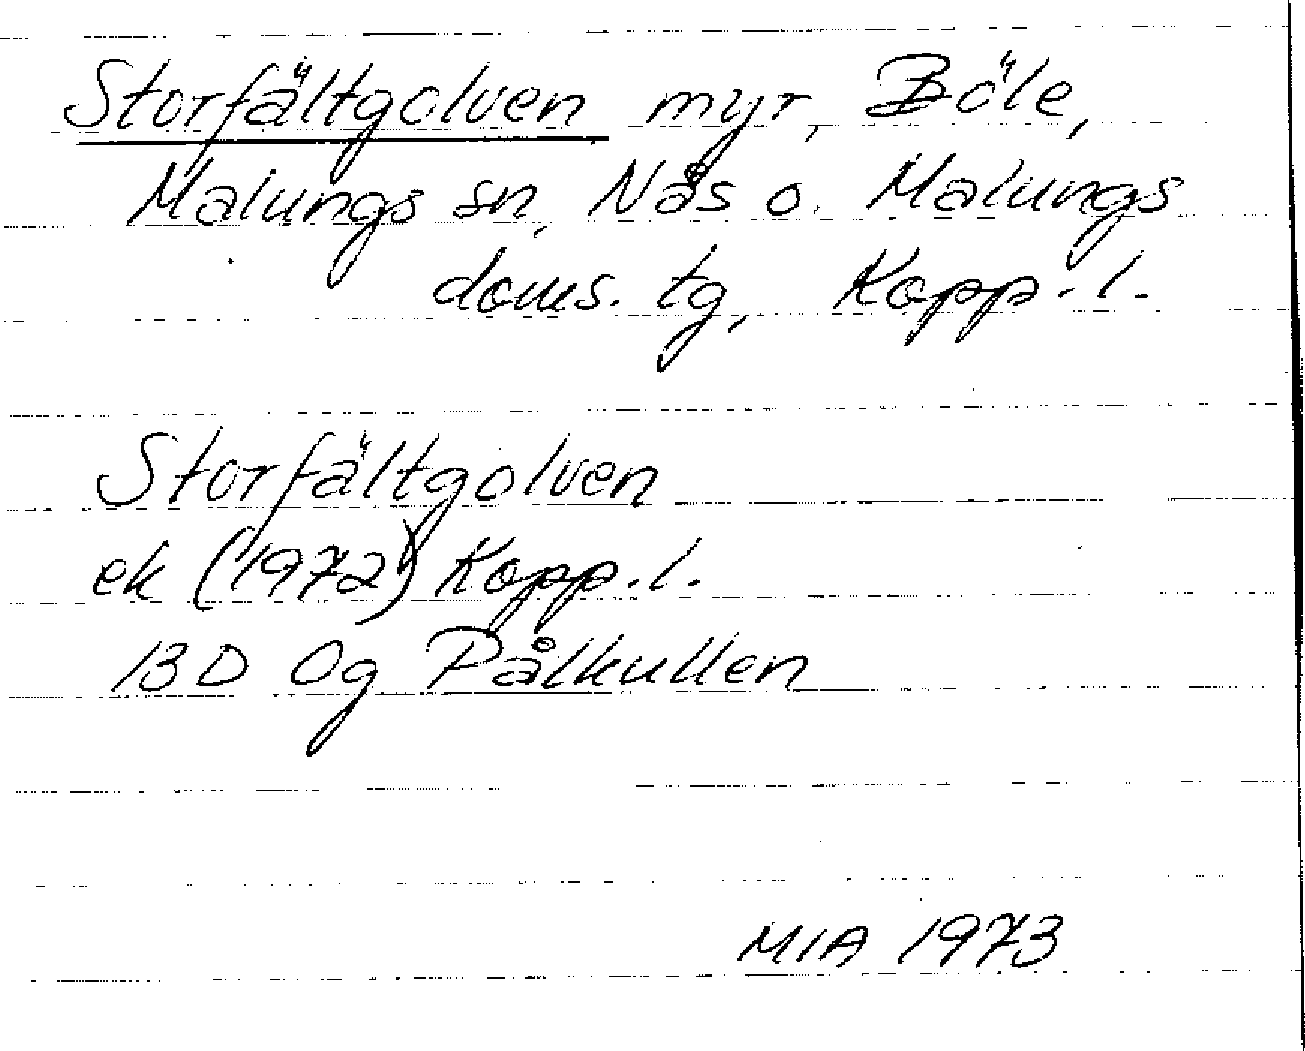 Storfältgolven myr, Böle,
Malungs sn, Nås o. Malungs
doms. tg, Kopp.l.
Storfältgolven
ek (1972) Kopp.l.
13D 0g Pålkullen
MIA 1973